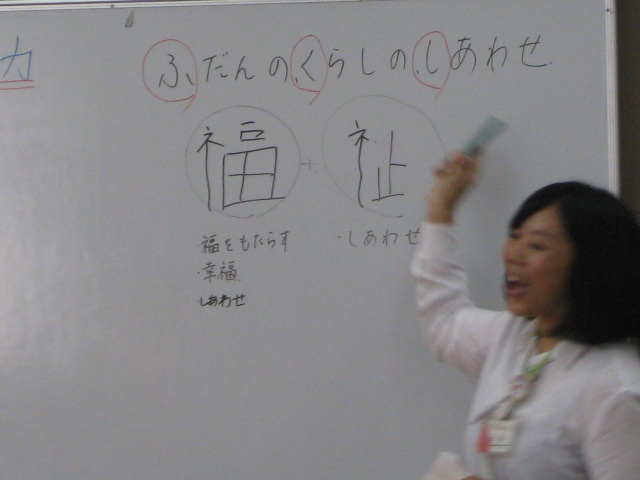 力
ふだんのくらしのしあわせ
福 + 祉
・福をもたらす
・幸福
しあわせ
・しあわせ